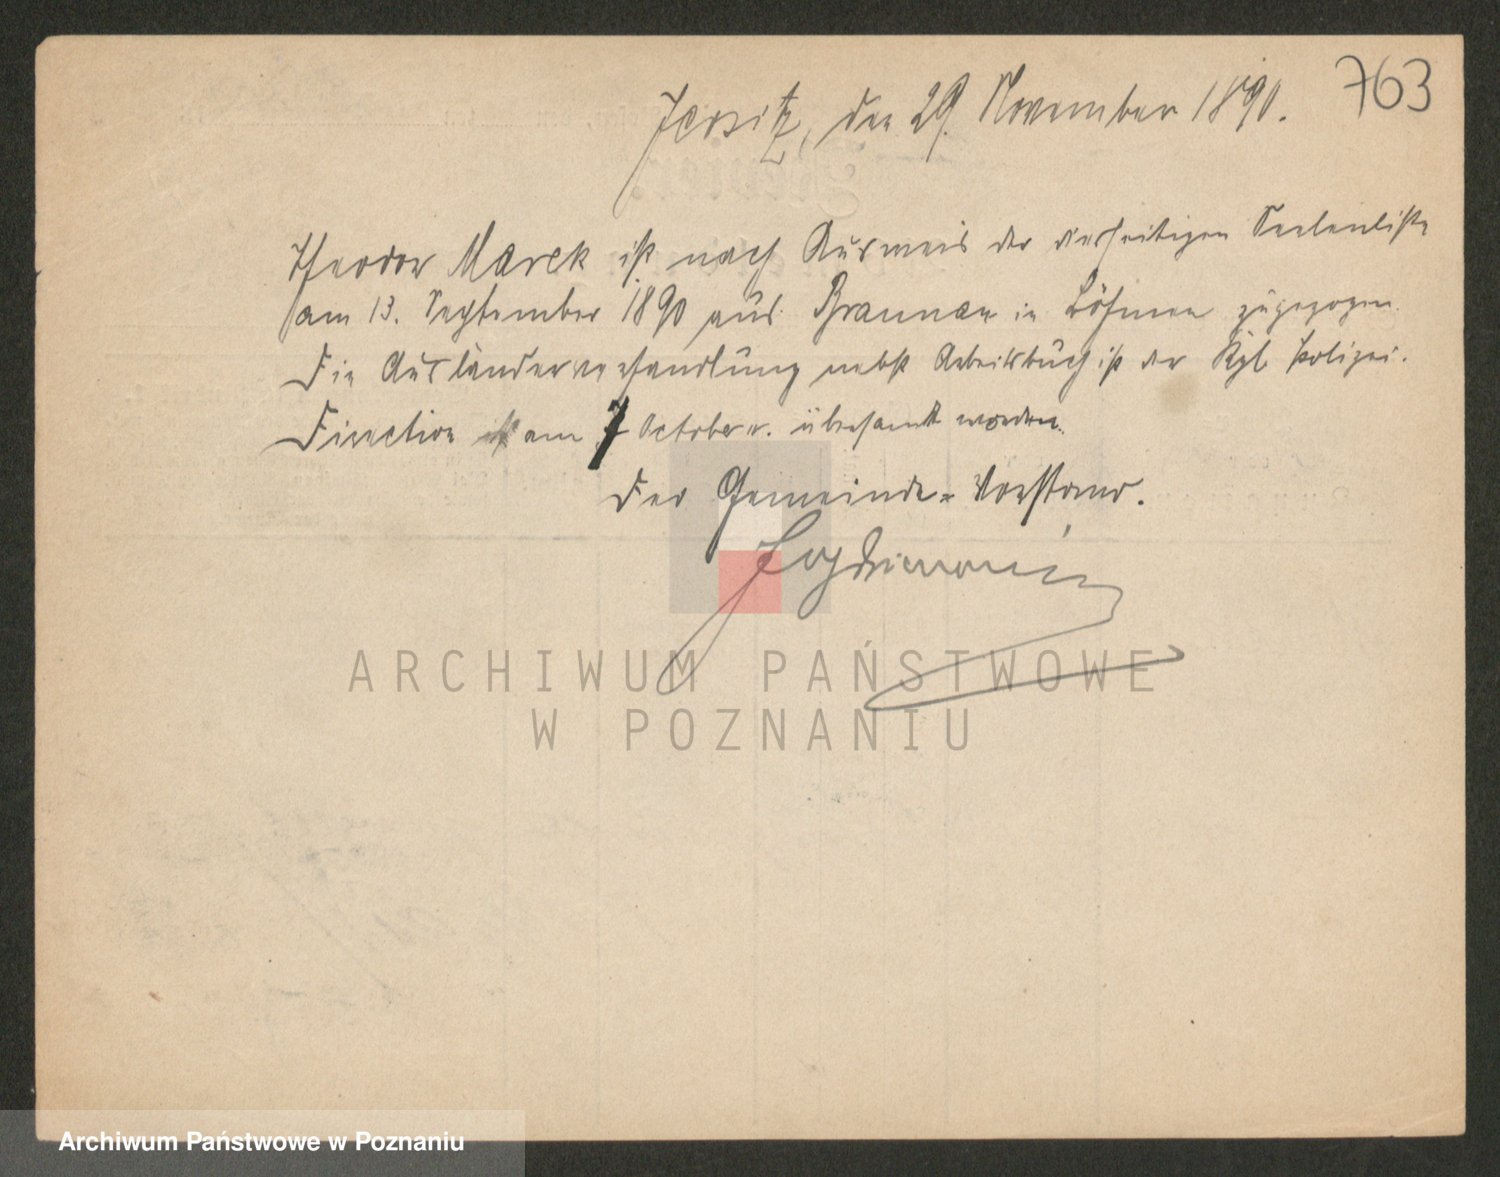 763
Jersitz, den 29. November 1890.
Theodor Marek ist nach Ausweis der diesseitigen Seelenliste
am 13. September 1890 aus Braunau in Böhmen zugezogen.
Die Ausländerverhandlung nebst Arbeitsbuch ist der Kgl. Polizei-
Direction am 7 October cr. übersandt worden.
Der Gemeinde-Vorstand.
ARCHIWUM PAŃSTWOWE
W POZNANIU
Archiwum Państwowe w Poznaniu